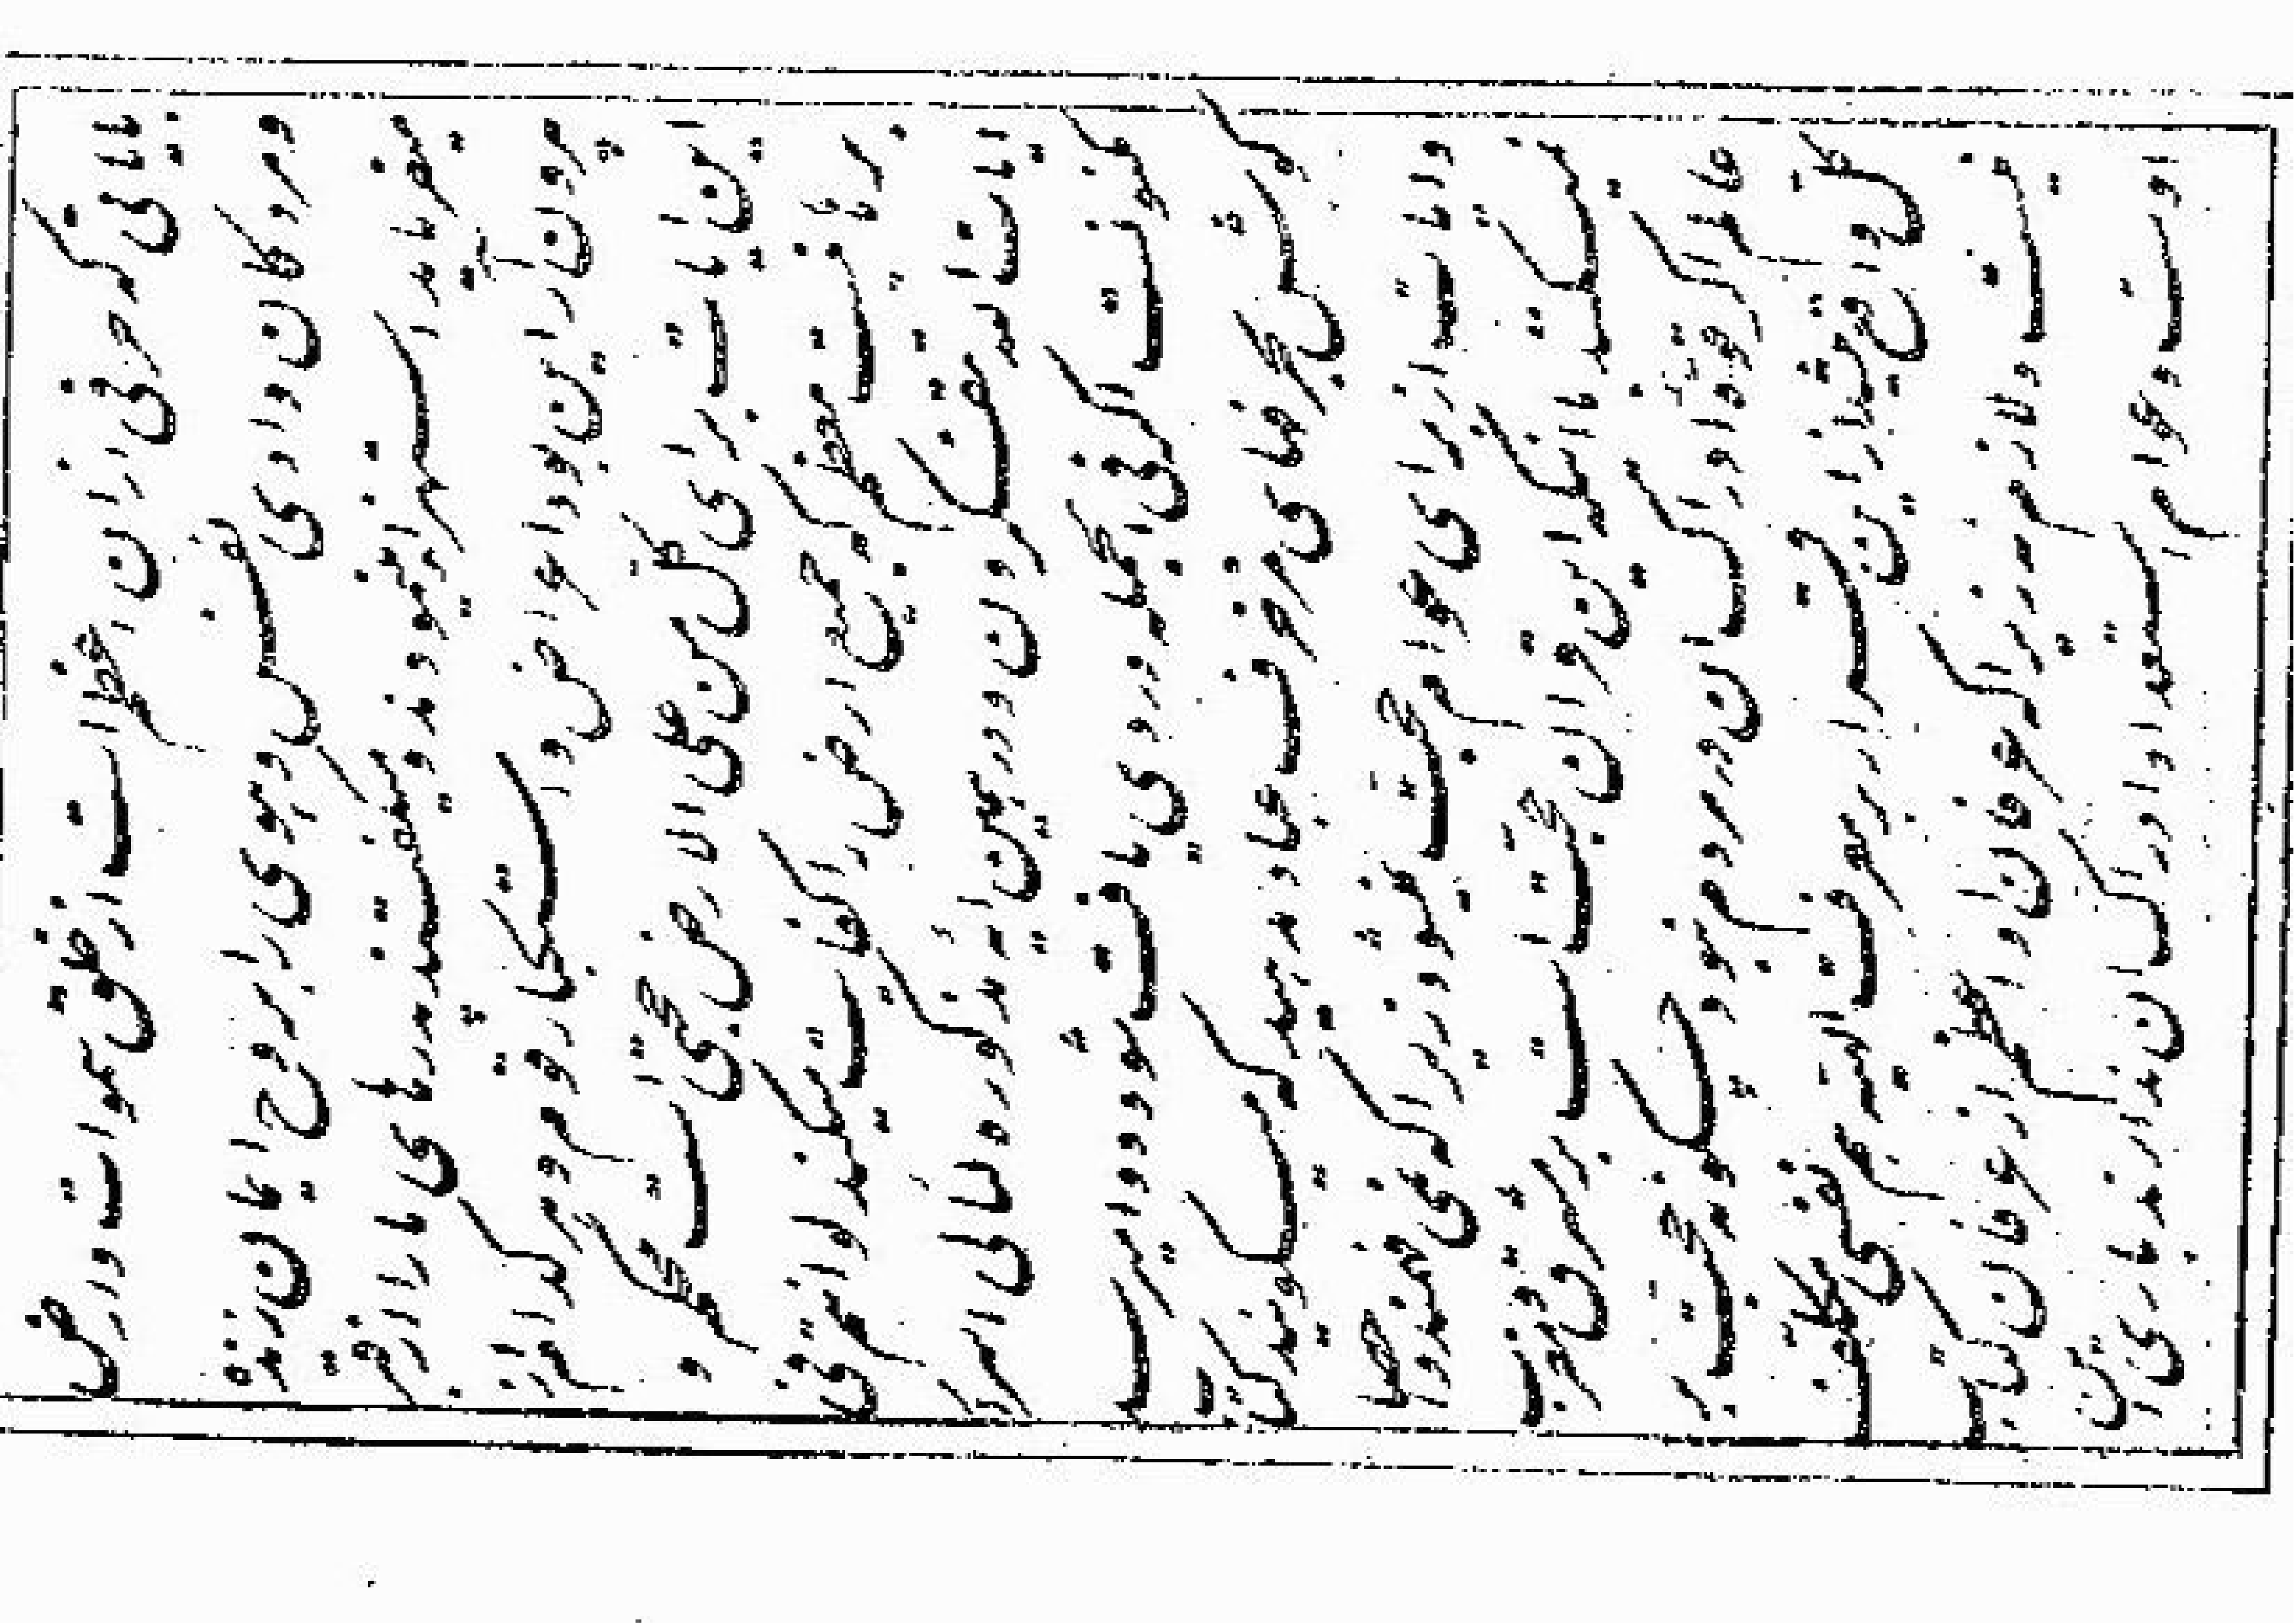 بیانی که حرفی از ان اعظم است از خلق سموات و ارض
و مردگان وادی نفس و هوی را بروح ایمان زنده
میفرماید اگر مستشعر
بیرون
این ایات برای کل من علی الارض حجتی است محکم و
برهانیست معظم که جمیع ارض را کفایت میکند لو انتم فی
ایات الله تتفکرون و در همین ایه مذکوره لئالی اسرار
مکنونست اگر فی الجمله دردی یافت شود دوا میرسد
گوش بحرفهای مزخرف عباد مدهید که میگویند کتاب
و ایات از برای عوام حجت نمیشود زیرا که نمی فهمند و احصا
نمیکنند با اینکه این قران حجت است بر مشرق و مغرب
عالم اگر قوه ادراک ان در مردم نبود چگونه حجت بر
کل واقع میشد از این قرار بر معرفت الهیه هم نفسی مکلف
نیست و لازم نه زیرا که عرفان او اعظم از عرفان کتاب
اوست و عوام استعداد ادراک ان ندارند باری این